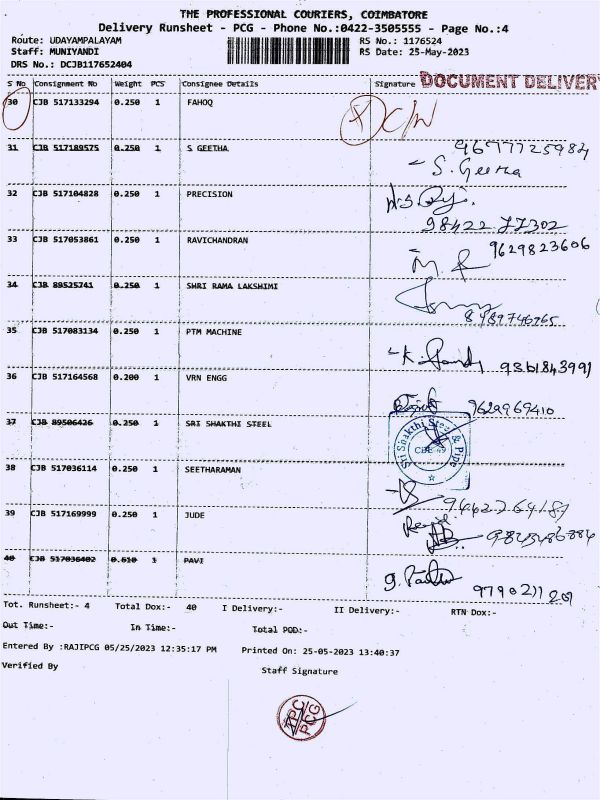 THE PROFESSIONAL COURIERS, COIMBATORE
Delivery Runsheet - PCG - Phone No.:0422-3505555 - Page No.:4
Route: UDAYAMPALAYAM RS No.: 1176524
Staff: MUNIYANDI RS Date: 25-May-2023
DRS No.: DCJB117652404
S No Consignment No Weight PCS Consignee Details Signature DOCUMENT DELIVER
30 CJB 517133294 0.250 1 FAHOQ
31 CJB 517189575 0.250 1 S GEETHA 9677725984
S. Geetha
32 CJB 517104828 0.250 1 PRECISION
98422 77302
33 CJB 517053861 0.250 1 RAVICHANDRAN 9629823606
34 CJB 89525741 0.250 1 SHRI RAMA LAKSHIMI
8489746765
35 CJB 517083134 0.250 1 PTM MACHINE
9361843991
36 CJB 517164568 0.200 1 VRN ENGG
9629969410
37 CJB 89506426 0.250 1 SRI SHAKTHI STEEL
Sri Shakthi Steel & Pipe
38 CJB 517036114 0.250 1 SEETHARAMAN
39 CJB 517169999 0.250 1 JUDE
40 CJB 517036402 0.610 1 PAVI
Tot. Runsheet:- 4 Total Dox:- 40 I Delivery:- II Delivery:- RTN Dox:-
Out Time:- In Time:- Total POD:-
Entered By :RAJIPCG 05/25/2023 12:35:17 PM Printed On: 25-05-2023 13:40:37
Verified By Staff Signature
TPC
PCG